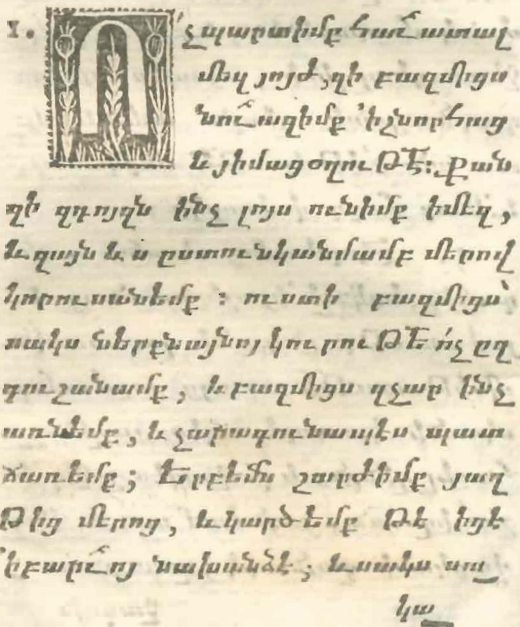 1. Ո՛չ պարտիմք հաւատալ
մեզ յոյժ, զի բազմիցս
նուազիմք ՛ի շնորհաց
և յիմացօղութէ։ Քան
զի զդոյզն ինչ լոյս ունիմք ի մեզ,
և զայն ևս ըստունկանմամբ մերով
կորուսանեմք ։ ուստի բազմիցս՝
սակս ներքնայնոյ կուրութէ ո՛չ ըզ
գուշանամք, և բազմիցս զչար ինչ
առնեմք, և չարագունապէս պատ
ճառեմք; Երբեմն շարժիմք յաղ
թից մերոց, և կարծեմք թէ իցէ
՛ի բարւոյ նախանձէ; և սակս սա_
կա_